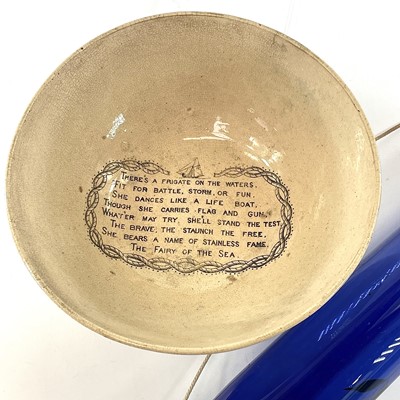 There's a frigate on the waters.
Fit for battle, storm, or fun.
She dances like a life boat,
Though she carries flag and gun,
What'er may try, she'll stand the test
The brave, the staunch the free,
She bears a name of stainless fame,
The Fairy of the Sea.